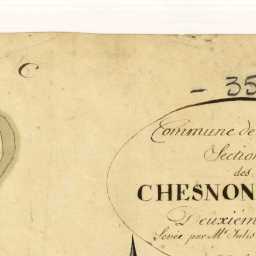 C
- 35
Commune de
Section
des
CHESNON
Deuxième
Levée par Mr. Jolis